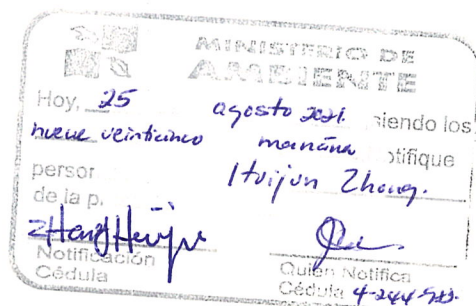 MINISTERIO DE
AMBIENTE
Hoy, 25 agosto 2021. siendo los
nueve veinticinco mañana otifique
person Huijun Zhang.
de la p.
ZHang Huiju
Notificación
Cédula
Quien Notifica
Cédula 4-244-